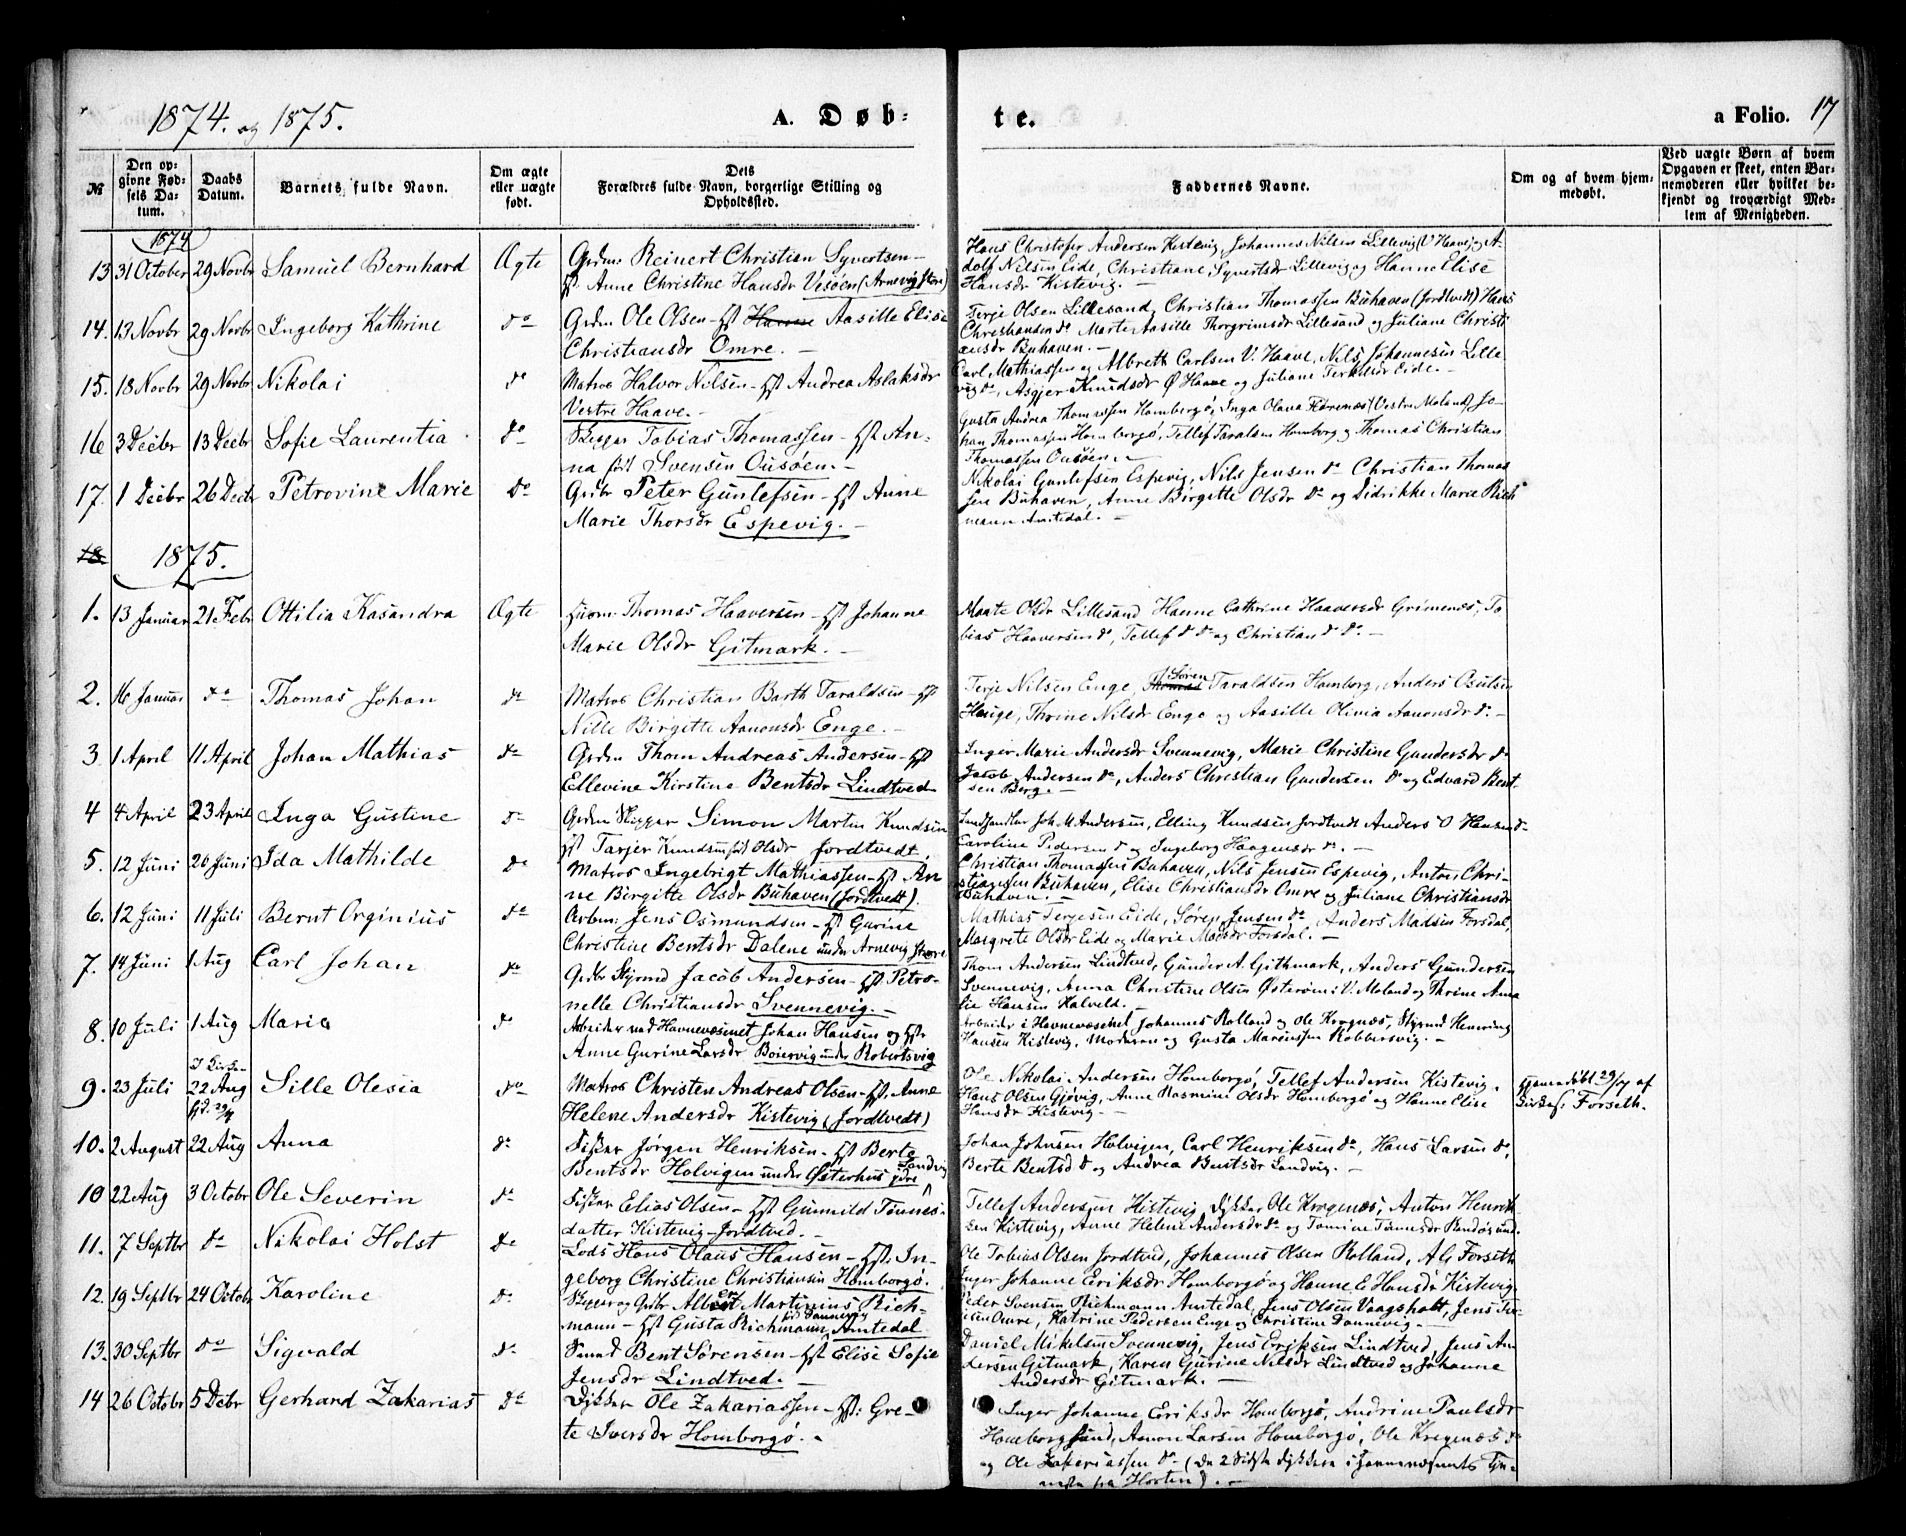 1874. og 1875.
A. Døb-
te.
a Folio. 17
№
Den op-
givne Fød-
sels Da-
tum.
Daabs
Datum.
Barnets fulde Navn.
Om ægte
eller uægte
født.
Dets
Forældres fulde Navn, borgerlige Stilling og
Opholdssted.
Faddernes Navne.
Om og af hvem hjem-
medøbt.
Ved uægte Børn af hvem
Opgaven er skeet, enten Bar-
nemoderen eller hvilket be-
kjendt og troværdigt Med-
lem af Menigheden.
1874
13 31 October 29 Novbr Samuel Bernhard Ægte Grdm: Reinert Christian Syvertsen –
Hst Anne Christine Hansdr Vesöen (Arnevig store)
Hans Christofer Andersen Kistevig, Johannes Nilsen Lillevig (V Haave) og A-
dolf Nilsen Eide, Christiane Syvertsdr Lillevig og Hanne Elise
Hansdr Kistevig. –
14. 13 Novbr 29 Novbr Ingeborg Kathrine do Grdm Ole Olsen – Hst Hanne Aasille Elise
Christiansdr Omre. –
Terje Olsen Lillesand, Christian Thomassen Buhaven (Jordtvedt) Hans
Christiansen do Marte Aasille Thorgrimsdr Lillesand og Juliane Christi
ansdr Buhaven. –
15. 18 Novbr 29 Novbr Nikolai do Matros Halvor Nilsen – Hst Andrea Aslaksdr
Vestre Haave. –
Carl Mathiassen og Albrett Carlsen V. Haave, Nils Johannesen Lille
vig do, Asgjer Knudsdr Ø Haave og Juliane Terkelsdr Eide. –
16 3 Decbr 13 Decbr Sofie Laurentia do Skipper Tobias Thomassen – Hst An-
na født Svensen Ousöen. –
Gusta Andrea Thomassen Homborgö, Inga Olava (Vestre Moland) Jo-
han Thomassen Homborgö, Tellef Taralsen Homborg og Thomas Christian
Thomassen Ousöen. –
17. 1 Decbr 26 Decbr Petrovine Marie do Grbr Peter Gunlefsen – Hst Anne
Marie Thorsdr Espevig. –
Nikolai Gunlefsen Espevig, Nils Jensen do Christian Thomas
sen Buhaven, Anne Birgitte Olsdr do og Didrikke Marie Rich
mann Amtedal. –
18 1875.
1. 13 Januar 21 Febr Ottilia Kasandra Ægte Huusm: Thomas Haaversen – Hst Johanne
Marie Olsdr Gitmark. –
Maate Olsdr Lillesand Hanne Cathrine Haaversdr Grimenes, To
bias Haaversen do, Tellef do do og Christian do do. –
2. 16 Januar do Thomas Johan do Matros Christian Barth Taraldsen – Hst
Nille Birgitte Aanonsdr Enge. –
Terje Nilsen Enge, Thomas Søren Taraldsen Homborg, Anders Osulsen
Hauge, Thrine Nilsdr Enge og Aasille Olivia Aanonsdr do. –
3 1 April 11 April Johan Mathias do Grdm Thom Andreas Andersen – Hst
Ellevine Kirstine Bentsdr Lindtved
Inger Marie Andersdr Svennevig, Marie Christine Gundersdr do
Jacob Andersen do, Anders Christian Gundersen do og Edvard Bent-
sen Berg. –
4 4 April 23 April Inga Gustine do Grdm Skipper Simon Martin Knudsen
Hst Tarjer Knudsen født Olsdr Jordtvedt.
Landhandler Joh. M. Andersen, Elling Knudsen Jordtvedt Anders O Hansen do
Caroline Pedersen do og Ingeborg Haagensdr do. –
5. 12 Juni 26 Juni Ida Mathilde do Matros Ingebrigt Mathiassen – Hst An
ne Birgitte Olsdr Buhaven (Jordtvedt).
Christian Thomassen Buhaven, Nils Jensen Espevig, Anton Chri-
stiansen Buhaven, Elise Christiansdr Omre og Juliane Christiansdr
Buhaven. –
6. 12 Juni 11 Juli Bernt Orginius do Arbm: Jens Osmundsen – Hst Gurine
Christine Bentsdr Dalene under Arnevig store
Mathias Terjesen Eide, Søren Jensen do Anders Madsen Forsdal,
Margrete Olsdr Eide og Marie Madsdr Forsdal. –
7. 14 Juni 1 Aug Carl Johan do Grbr Styrmd Jacob Andersen – Hst Petro-
nelle Christiansdr Svennevig. –
Thom Andersen Lindtved, Gunder A. Githmark, Anders Gundersen
Svennevig, Anna Christine Olsen Østerøm i V. Moland og Thrine Ama
lie Hansen Kalveld. –
8. 10 Juli 1 Aug Marie do Arbeider ved Havnevæsenet Johan Hansen og Hstr
Anne Gurine Larsdr Böiervig under Robertsvig
Arbeider i Havnevæsenet Johannes Rolland og Ole Krogenæs, Styrmd Henning
Hansen Kistevig, Moderen og Gusta Mareussen Robbersvig. –
9. 23 Juli I Kirken 22 Aug hjd. 29/7 Sille Olesia do Matros Christen Andreas Olsen – Hst. Anne
Helene Andersdr Kistevig (Jordtvedt)
Ole Nikolai Andersen Homborgö, Tellef Andersen Kistevig.
Hans Olsen Gjövig, Anne Rasmine Olsdr Homborgö og Hanne Elise
Hansdr Kistevig. –
Hjemmedöbt 29/7 af
Kirkes: Forseth.
10. 2 August 22 Aug Anna do Fisker Jörgen Henriksen – Hst Berte
Bentsdr Holvigen under Østerhus ydre Sandvig
Johan Johnsen Holvigen, Carl Henriksen do, Hans Larsen do,
Berte Bentsd do og Andrea Bentsdr Sandvig. –
10 22 Aug 3 Octobr Ole Severin do Fisker Elias Olsen – Hst Gunnild Tönnes-
datter Kistevig Jordtved. –
Tellef Andersen Kistevig, Dykker Ole Krogenæs, Anton Henrik
sen Kistevig, Anne Helene Andersdr do og Tomine Tönnesdr
11. 7 Septbr do Nikolai Holst do Lods Hans Olaus Hansen – Hst: In-
geborg Christine Christiansen Homborgö.
Ole Tobias Olsen Jordtved, Johannes Olsen Rolland, A. G. Forseth
Inger Johanne Eriksdr Homborgö og Hanne E Hansdr Kistevig.
12. 19 Septbr 24 Octobr Karoline do Skipper og Grbr Albert Martinius Rich-
mann – Hst Gusta Richmann født Dannevig Amtedal
Peder Svensen Richmann Amtedal, Jens Olsen Vaagsholt, Jens Ter-
jesen Omre, Katrine Pedersen Enge og Christine Dannevig. –
13. 30 Septbr do Sigvald do Smed Bent Sörensen – Hst Elise Sofie
Jensdr Lindtved. –
Daniel Mikelsen Svennevig, Jens Eriksen Lindtved, Jens An
dersen Gitmark, Karen Gurine Nilsdr Lindtved og Johanne
Andersdr Gitmark. –
14 26 Octobr 5 Debr Gerhard Zakarias do Dykker Ole Zakariassen – Hst: Gre-
te Iversdr Homborgö. –
Inger Johanne Eriksdr Homborgö, Andrine Paulsdr
Homborgsund, Aanon Larsen Homborgö, Ole Kregenæs do
og Ole Zakariassen do (De 2 sidste dykkere i Havnevæsenets Tje-
neste fra Horten). –